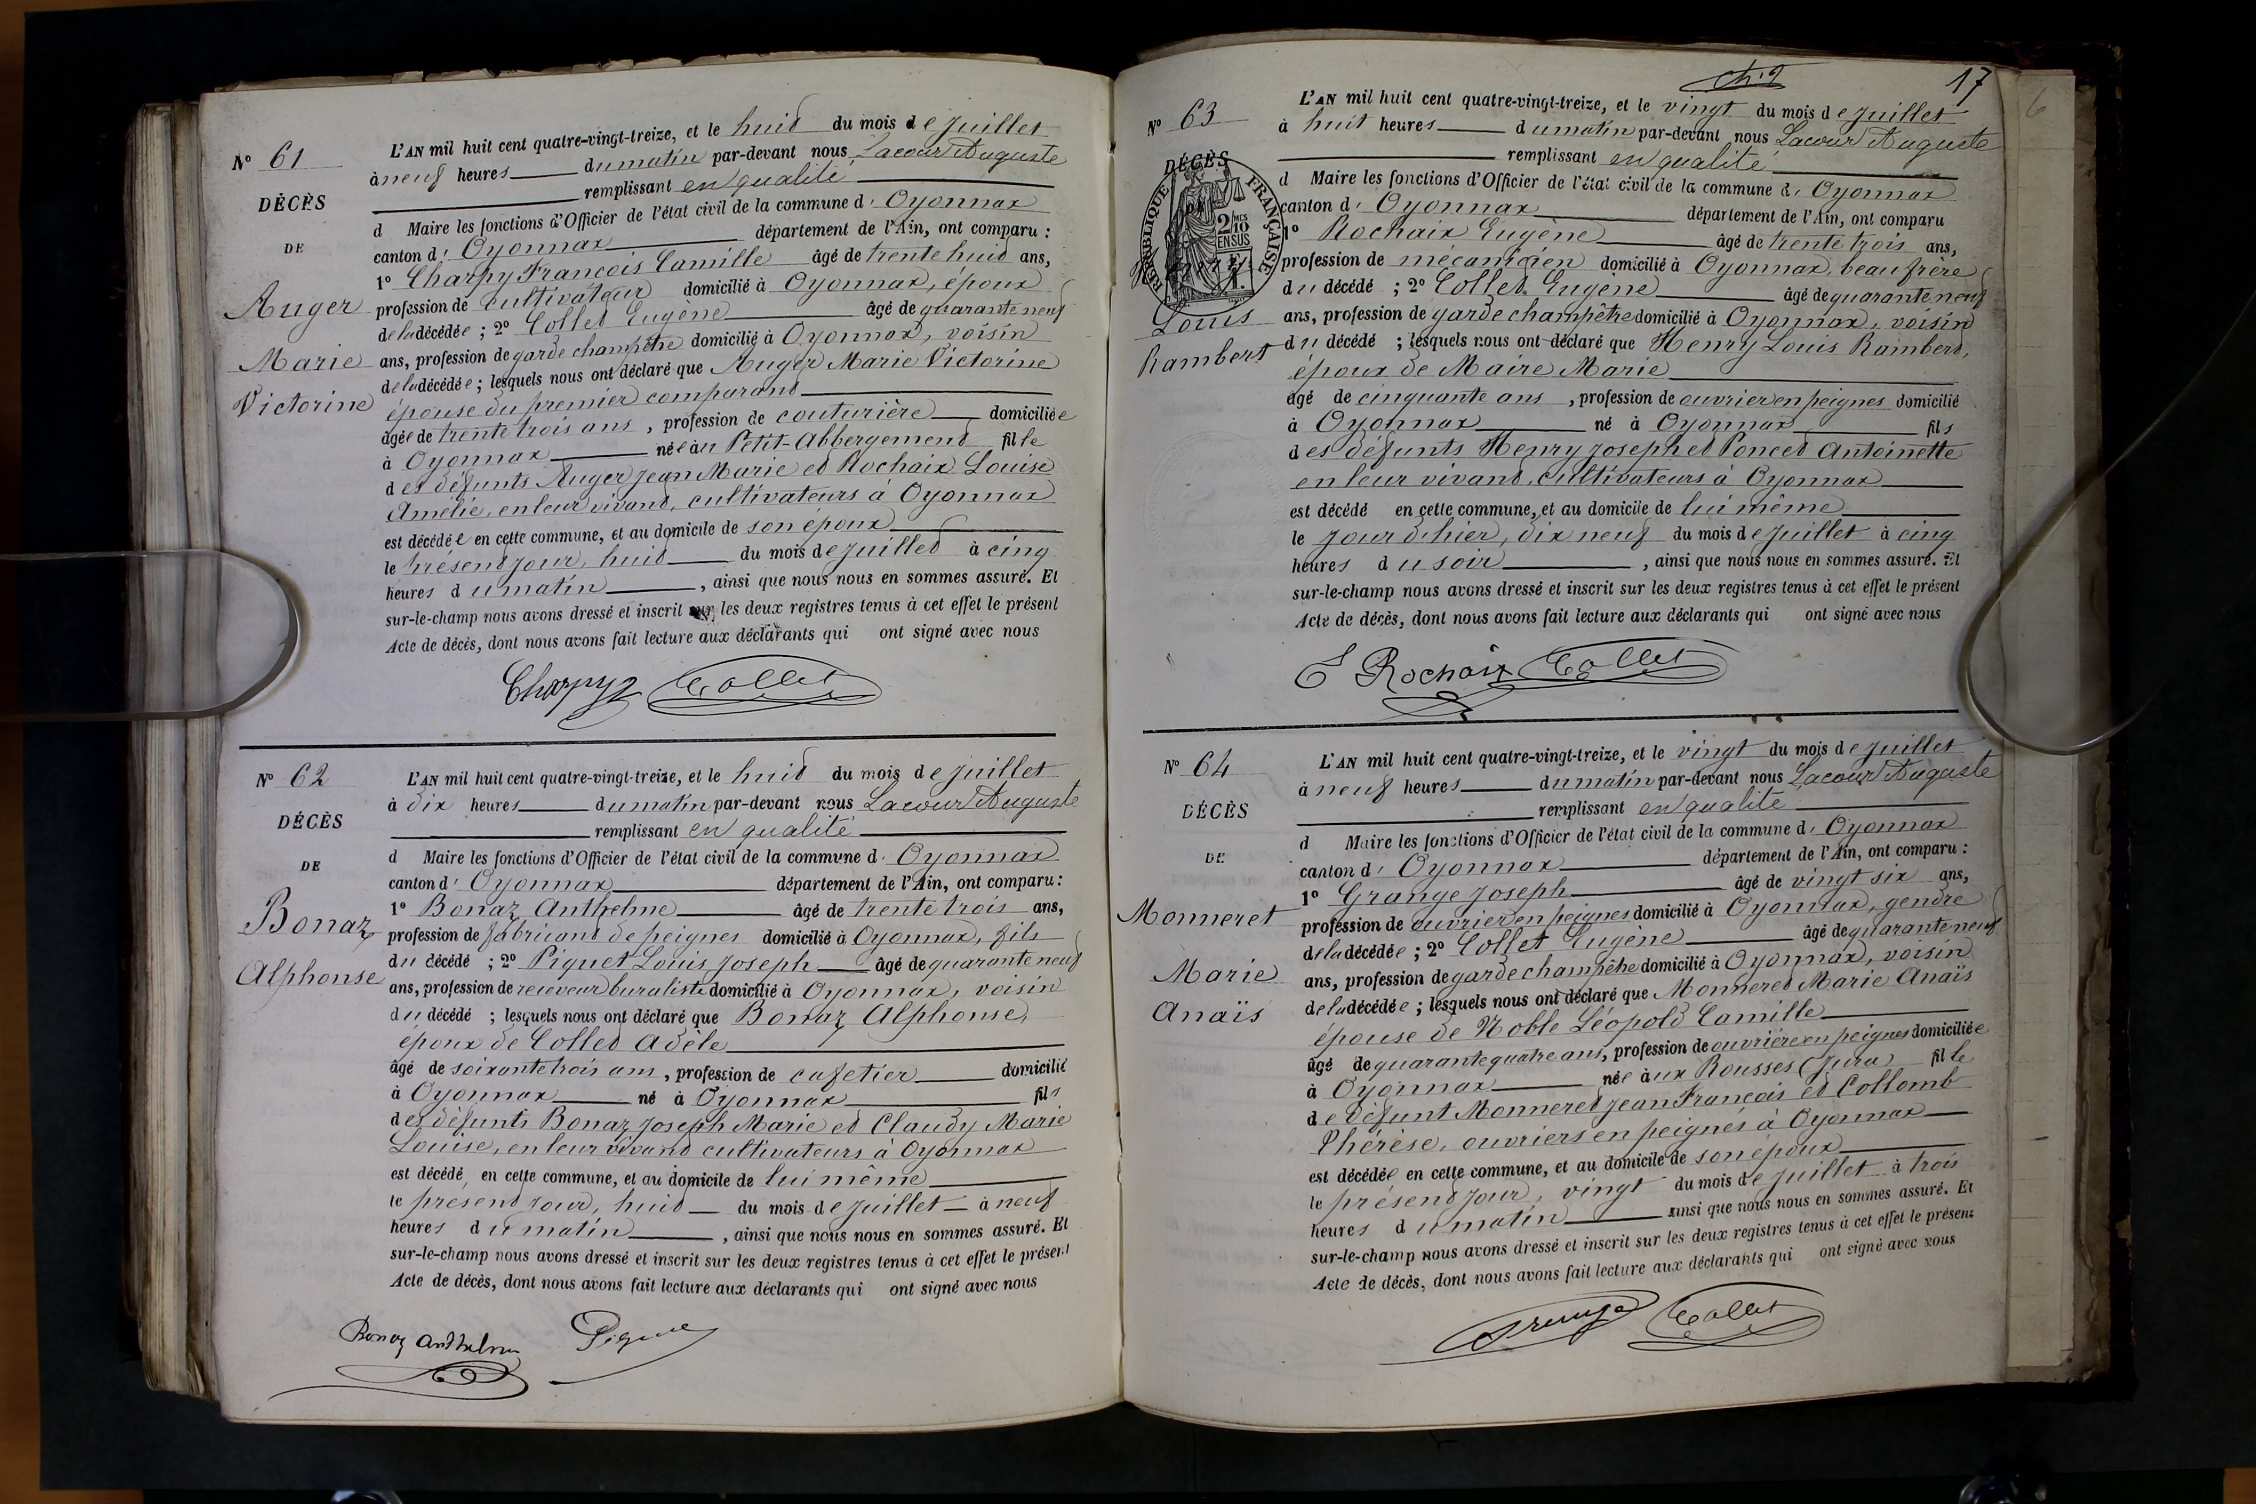 N° 61
DÉCÈS
DE
Auger
Marie
Victorine
L'AN mil huit cent quatre-vingt-treize, et le huit du mois de Juillet
à neuf heures du matin par-devant nous Lacour Auguste
remplissant en qualité
d Maire les fonctions d'Officier de l'état civil de la commune d' Oyonnax
canton d' Oyonnax département de l'Ain, ont comparu :
1° Charpy François Camille âgé de trente huit ans,
profession de cultivateur domicilié à Oyonnax, époux
de la décédée ; 2° Collet Eugène âgé de quarante neuf
ans, profession de garde champêtre domicilié à Oyonnax, voisin
de la décédée ; lesquels nous ont déclaré que Auger Marie Victorine
épouse du premier comparant
âgée de trente trois ans, profession de couturière domiciliée
à Oyonnax née au Petit-Abbergement fille
des défunts Auger Jean Marie et Rochaix Louise
Amélie, en leur vivant, cultivateurs à Oyonnax
est décédée en cette commune, et au domicile de son époux
le présent jour, huit du mois de Juillet à cinq
heures du matin, ainsi que nous nous en sommes assuré. Et
sur-le-champ nous avons dressé et inscrit sur les deux registres tenus à cet effet le présent
Acte de décès, dont nous avons fait lecture aux déclarants qui ont signé avec nous
Charpy Collet
N° 62
DÉCÈS
DE
Bonaz
Alphonse
L'AN mil huit cent quatre-vingt-treize, et le huit du mois de Juillet
à dix heures du matin par-devant nous Lacour Auguste
remplissant en qualité
d Maire les fonctions d'Officier de l'état civil de la commune d' Oyonnax
canton d' Oyonnax département de l'Ain, ont comparu :
1° Bonaz Anthelme âgé de trente trois ans,
profession de fabricant de peignes domicilié à Oyonnax, fils
du décédé ; 2° Piquet Louis Joseph âgé de quarante neuf
ans, profession de receveur buraliste domicilié à Oyonnax, voisin
du décédé ; lesquels nous ont déclaré que Bonaz Alphonse,
époux de Collet Adèle
âgé de soixante trois ans, profession de cafetier domicilié
à Oyonnax né à Oyonnax fils
des défunts Bonaz Joseph Marie et Claudy Marie
Louise, en leur vivant cultivateurs à Oyonnax
est décédé en cette commune, et au domicile de lui même
le présent jour, huit du mois de Juillet à neuf
heures du matin, ainsi que nous nous en sommes assuré. Et
sur-le-champ nous avons dressé et inscrit sur les deux registres tenus à cet effet le présent
Acte de décès, dont nous avons fait lecture aux déclarants qui ont signé avec nous
Bonaz Anthelme Piquet
17
N° 63
DÉCÈS
RÉPUBLIQUE FRANÇAISE
2/10 EN SUS
Louis
Rambert
L'AN mil huit cent quatre-vingt-treize, et le vingt du mois de Juillet
à huit heures du matin par-devant nous Lacour Auguste
remplissant en qualité
d Maire les fonctions d'Officier de l'état civil de la commune d' Oyonnax
canton d' Oyonnax département de l'Ain, ont comparu
1° Rochaix Eugène âgé de trente trois ans,
profession de mécanicien domicilié à Oyonnax, beau frère
du décédé ; 2° Collet Eugène âgé de quarante neuf
ans, profession de garde champêtre domicilié à Oyonnax, voisin
du décédé ; lesquels nous ont déclaré que Henry Louis Rambert,
époux de Maire Marie
âgé de cinquante ans, profession de ouvrier en peignes domicilié
à Oyonnax né à Oyonnax fils
des défunts Henry Joseph et Poncet Antoinette
en leur vivant, cultivateurs à Oyonnax
est décédé en cette commune, et au domicile de lui même
le jour d'hier, dix neuf du mois de Juillet à cinq
heures du soir, ainsi que nous nous en sommes assuré. Et
sur-le-champ nous avons dressé et inscrit sur les deux registres tenus à cet effet le présent
Acte de décès, dont nous avons fait lecture aux déclarants qui ont signé avec nous
E Rochaix Collet
N° 64
DÉCÈS
DE
Monneret
Marie
Anaïs
L'AN mil huit cent quatre-vingt-treize, et le vingt du mois de Juillet
à neuf heures du matin par-devant nous Lacour Auguste
remplissant en qualité
d Maire les fonctions d'Officier de l'état civil de la commune d' Oyonnax
canton d' Oyonnax département de l'Ain, ont comparu :
1° Grange Joseph âgé de vingt six ans,
profession de ouvrier en peignes domicilié à Oyonnax, gendre
de la décédée ; 2° Collet Eugène âgé de quarante neuf
ans, profession de garde champêtre domicilié à Oyonnax, voisin
de la décédée ; lesquels nous ont déclaré que Monneret Marie Anaïs
épouse de Noble Léopold Camille
âgé de quarante quatre ans, profession de ouvrière en peignes domiciliée
à Oyonnax née aux Rousses (Jura) fille
de défunt Monneret Jean François et Collomb
Thérèse, ouvriers en peignes à Oyonnax
est décédée en cette commune, et au domicile de son époux
le présent jour, vingt du mois de Juillet à trois
heures du matin ainsi que nous nous en sommes assuré. Et
sur-le-champ nous avons dressé et inscrit sur les deux registres tenus à cet effet le présent
Acte de décès, dont nous avons fait lecture aux déclarants qui ont signé avec nous
Grange Collet